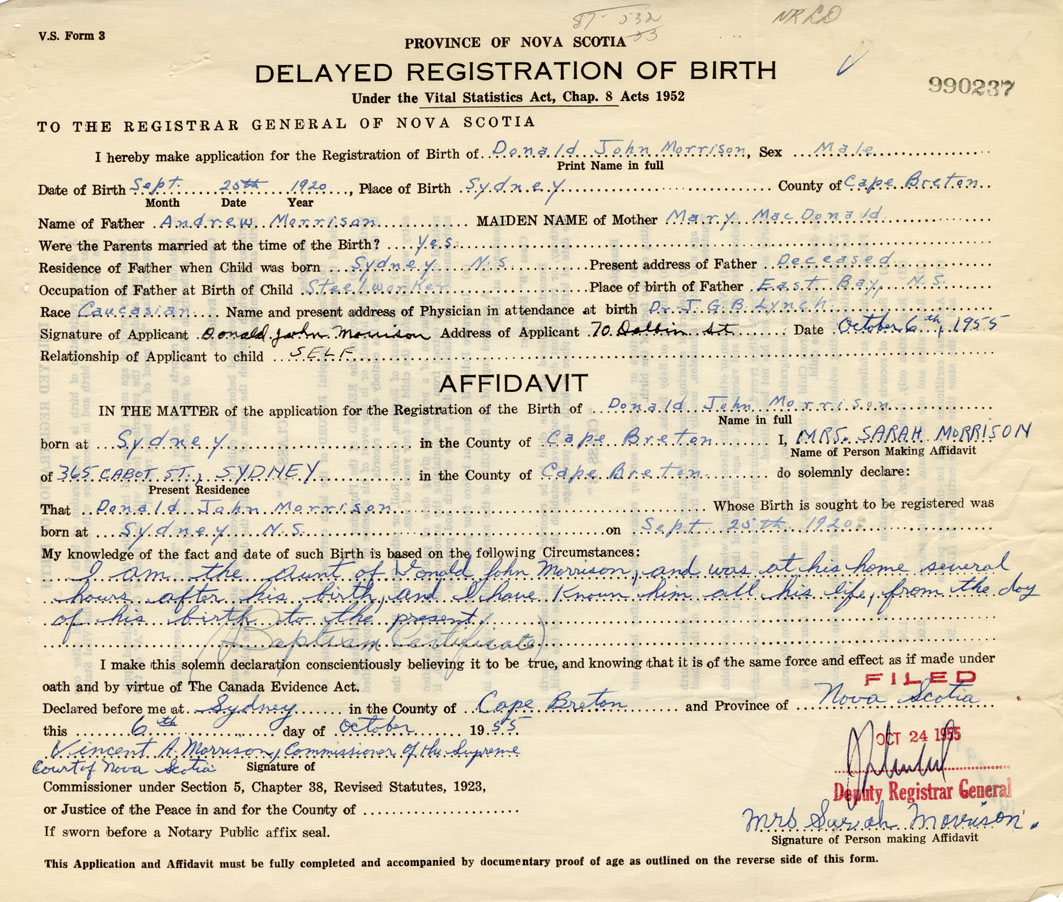 87-532
33
NR LD
V.S. Form 3
PROVINCE OF NOVA SCOTIA
DELAYED REGISTRATION OF BIRTH
990237
Under the Vital Statistics Act, Chap. 8 Acts 1952
TO THE REGISTRAR GENERAL OF NOVA SCOTIA
I hereby make application for the Registration of Birth of Donald John Morrison, Sex Male
Print Name in full
Date of Birth Sept. 25th 1920, Place of Birth Sydney County of Cape Breton
Month Date Year
Name of Father Andrew Morrison MAIDEN NAME of Mother Mary MacDonald
Were the Parents married at the time of the Birth? yes
Residence of Father when Child was born Sydney N.S. Present address of Father Deceased
Occupation of Father at Birth of Child Steelworker Place of birth of Father East Bay, N.S.
Race Caucasian Name and present address of Physician in attendance at birth Dr. J.G.B. Lynch
Signature of Applicant Donald John Morrison Address of Applicant 70 Dolbin St. Date October 6th, 1955
Relationship of Applicant to child SELF
AFFIDAVIT
IN THE MATTER of the application for the Registration of the Birth of Donald John Morrison
Name in full
born at Sydney in the County of Cape Breton I, MRS. SARAH MORRISON
Name of Person Making Affidavit
of 365 CABOT ST., SYDNEY in the County of Cape Breton do solemnly declare:
Present Residence
That Donald John Morrison Whose Birth is sought to be registered was
born at Sydney N.S. on Sept 25th 1920
My knowledge of the fact and date of such Birth is based on the following Circumstances:
I am the aunt of Donald John Morrison, and was at his home several
hours after his birth, and I have known him all his life, from the day
of his birth to the present.
(Baptism Certificate)
I make this solemn declaration conscientiously believing it to be true, and knowing that it is of the same force and effect as if made under
oath and by virtue of The Canada Evidence Act.
FILED
Declared before me at Sydney in the County of Cape Breton and Province of Nova Scotia
this 6th day of October 1955
OCT 24 1955
Vincent A. Morrison, Commissioner of the Supreme
Court of Nova Scotia Signature of
Commissioner under Section 5, Chapter 38, Revised Statutes, 1923,
Deputy Registrar General
or Justice of the Peace in and for the County of
Mrs Sarah Morrison.
If sworn before a Notary Public affix seal.
Signature of Person making Affidavit
This Application and Affidavit must be fully completed and accompanied by documentary proof of age as outlined on the reverse side of this form.